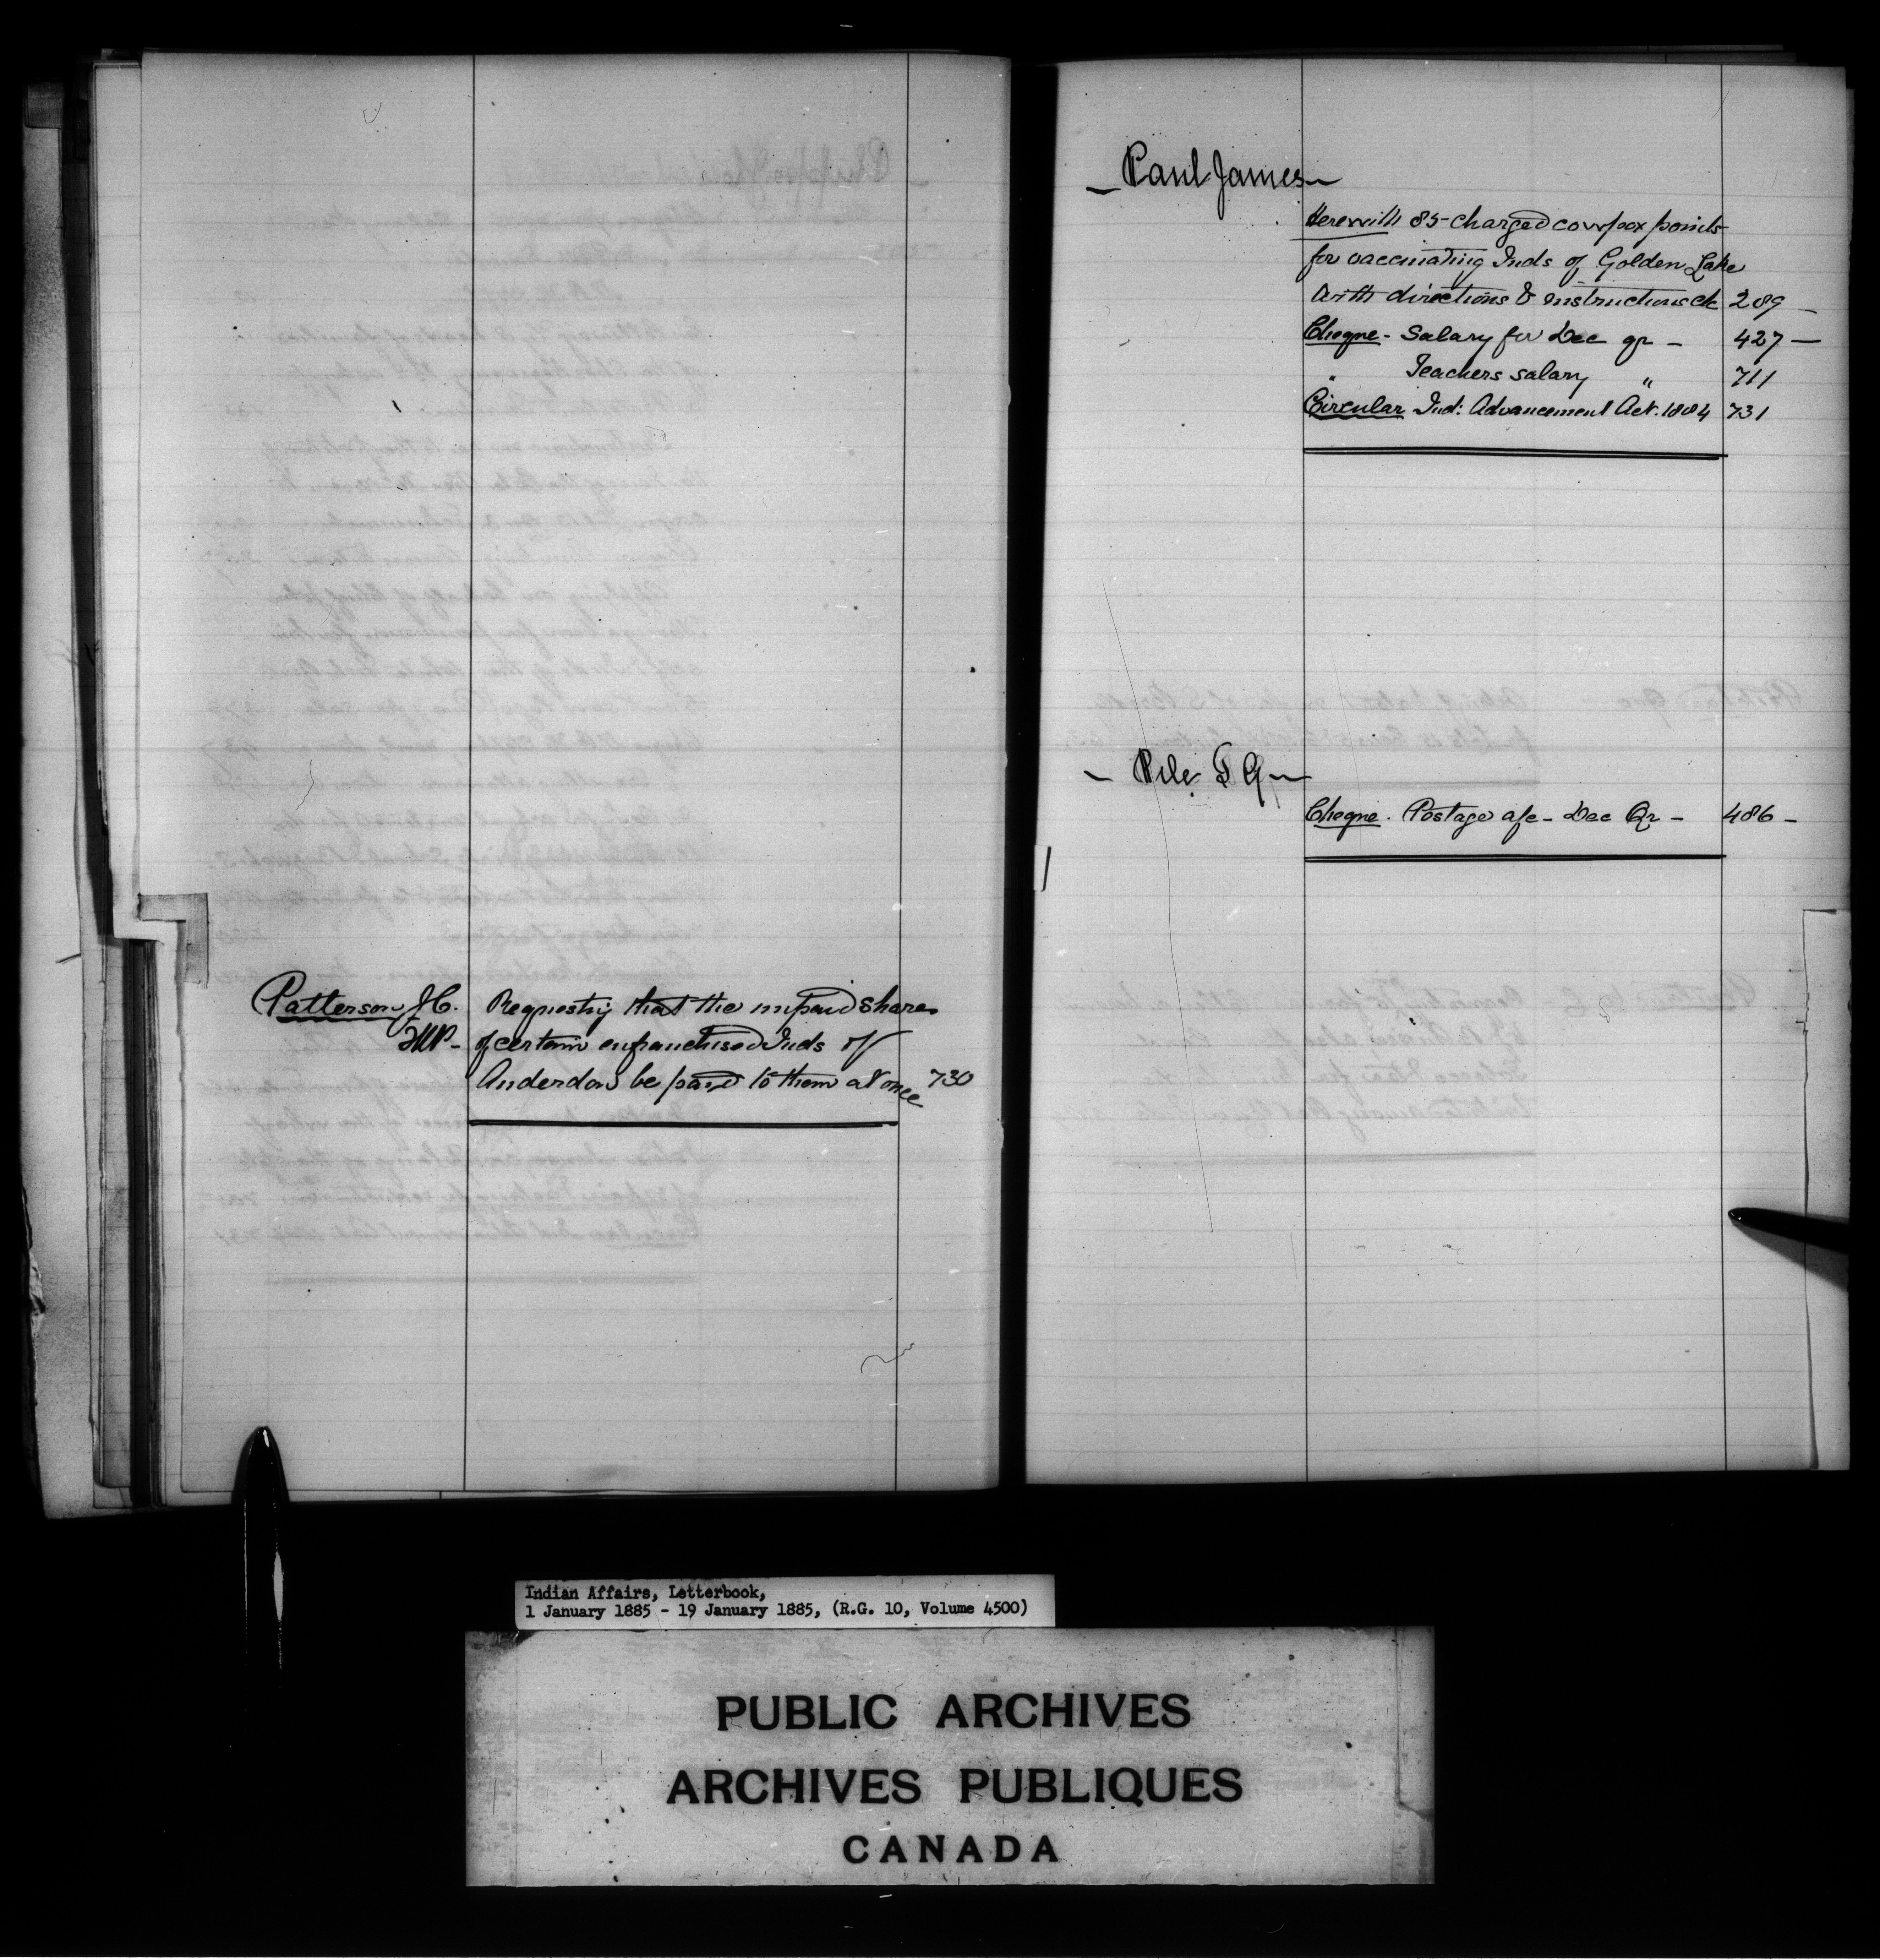 Patterson, J.C. Requestig that the unpaid shares
M.P. - of certain enfranchised Inds of
Anderdon be paid to them at once 730
— Paul James —
Herewith 85 charged cowpox points
for vaccinating Inds of Golden Lake
with directions & instructions &c 289 —
Cheque - Salary for Dec qr — 427 —
" Teachers salary " 711
Circular Ind: Advancement Act. 1884 731
— Pile T G —
Cheque. Postage a/c - Dec Qr — 486 —
Indian Affairs, Letterbook,
1 January 1885 - 19 January 1885, (R.G. 10, Volume 4500)
PUBLIC ARCHIVES
ARCHIVES PUBLIQUES
CANADA